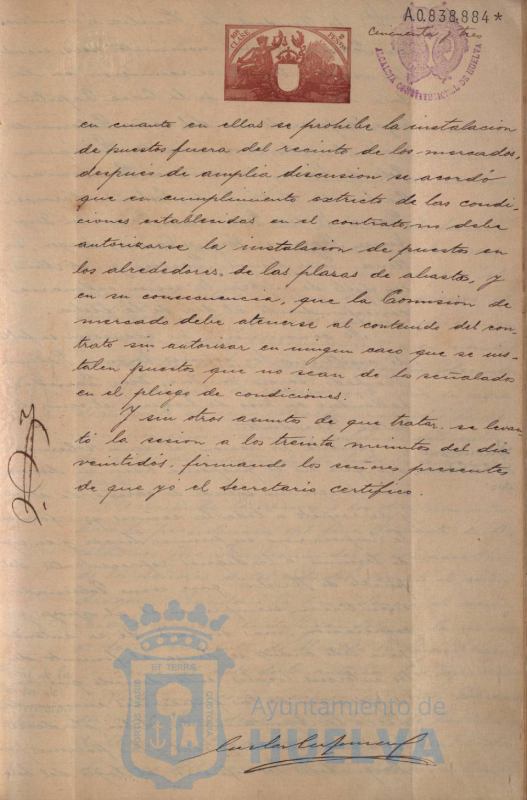 A0.838.884*
Cincuenta y tres
ALCALDIA CONSTITUCIONAL DE HUELVA
10ª CLASE
2 PESOS
en cuanto en ellas se prohibe la instalacion
de puestos fuera del recinto de los mercados,
despues de amplia discusion se acordó
que en cumplimiento extricto de las condi-
ciones establecidas en el contrato, no debe
autorizarse la instalacion de puestos en
los alrededores, de las plazas de abasto, y
en su consecuencia, que la Comision de
mercado debe atenerse al contenido del con-
trato sin autorizar en ningun caso que se ins-
talen puestos que no sean de los señalados
en el pliego de condiciones.
Y sin otros asuntos de que tratar, se levan
tó la sesion a los treinta minutos del dia
veintidós, firmando los señores presentes
de que yo el Secretario certifico.
PORTUS MARIS
ET TERRÆ
CUSTODIA
Ayuntamiento de
HUELVA